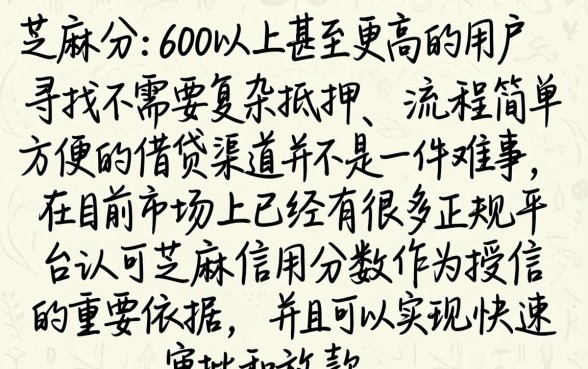 芝麻分:600以上甚至更高的用户
寻找不需要复杂抵押、流程简单
方便的借贷渠道并不是一件难事,
在目前市场上已经有很多正规平
台认可芝麻信用分数作为授信
的重要依据,并且可以实现快速
审批和放款